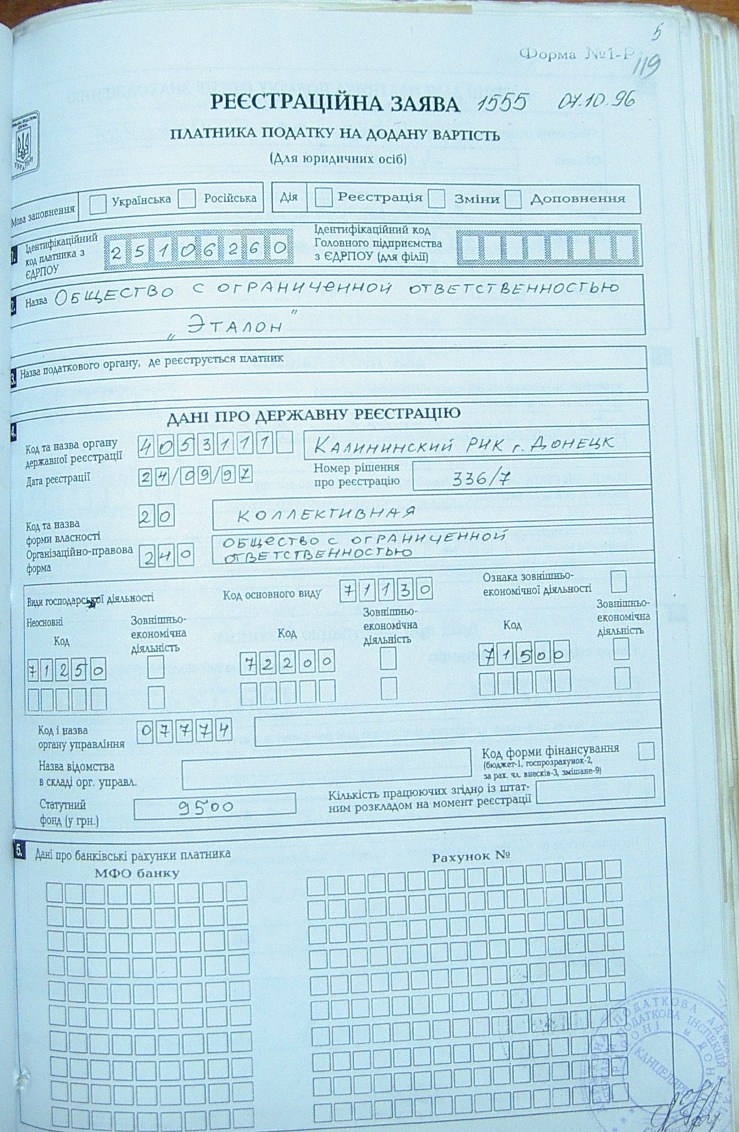 5
Форма №1-Р
119
РЕЄСТРАЦІЙНА ЗАЯВА 1555 07.10.96
ПЛАТНИКА ПОДАТКУ НА ДОДАНУ ВАРТІСТЬ
(Для юридичних осіб)
Мова заповнення Українська Російська Дія Реєстрація Зміни Доповнення
1. Ідентифікаційний код платника з ЄДРПОУ 25106260 Ідентифікаційний код Головного підприємства з ЄДРПОУ (для філії)
2. Назва Общество с ограниченной ответственностью
„Эталон"
3. Назва податкового органу, де реєструється платник
4. ДАНІ ПРО ДЕРЖАВНУ РЕЄСТРАЦІЮ
Код та назва органу державної реєстрації 4053111 Калининский РИК г. Донецк
Дата реєстрації 24/09/97 Номер рішення про реєстрацію 336/7
Код та назва форми власності 20 коллективная
Організаційно-правова форма 240 общество с ограниченной
ответственностью
Види господарської діяльності Код основного виду 71130 Ознака зовнішньо-економічної діяльності
Неосновні
Код Зовнішньо-економічна діяльність Код Зовнішньо-економічна діяльність Код Зовнішньо-економічна діяльність
71250 72200 71500
Код і назва органу управління 07774
Назва відомства в складі орг. управл. Код форми фінансування
(бюджет-1, госпрозрахунок-2,
за рах. чл. внесків-3, змішане-9)
Статутний фонд (у грн.) 9500 Кількість працюючих згідно із штат-
ним розкладом на момент реєстрації
5. Дані про банківські рахунки платника
МФО банку Рахунок №
КАНЦЕЛЯРІЯ